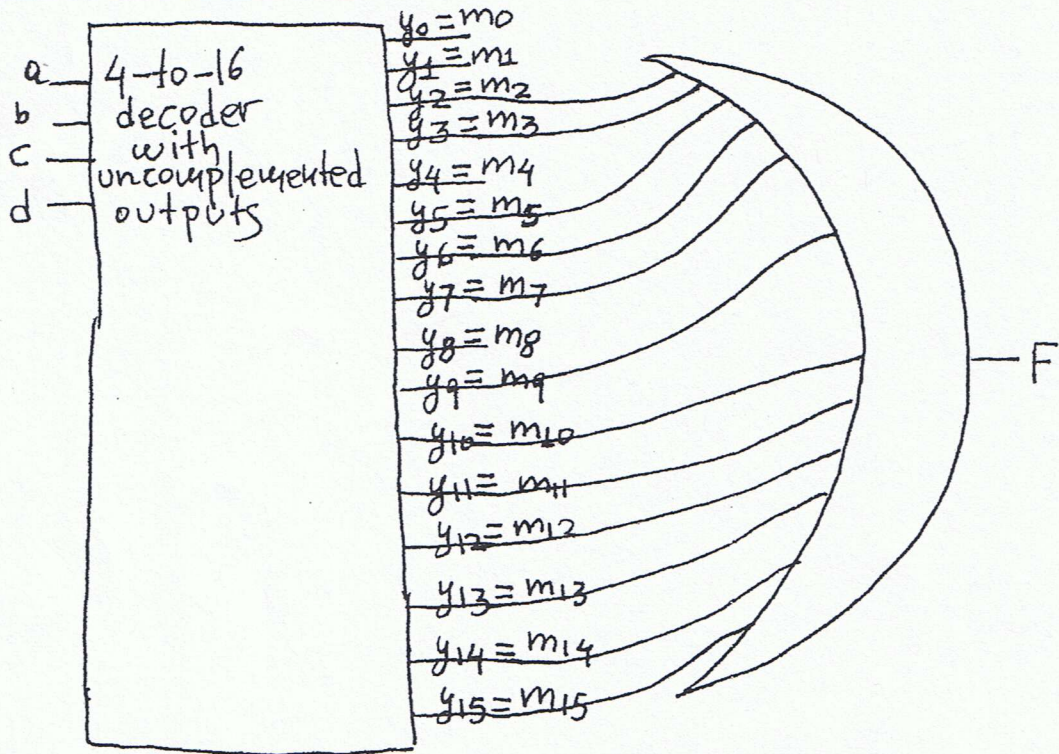 a
b
c
d
4-to-16
decoder
with
uncomplemented
outputs
y0=m0
y1=m1
y2=m2
y3=m3
y4=m4
y5=m5
y6=m6
y7=m7
y8=m8
y9=m9
y10=m10
y11=m11
y12=m12
y13=m13
y14=m14
y15=m15
F